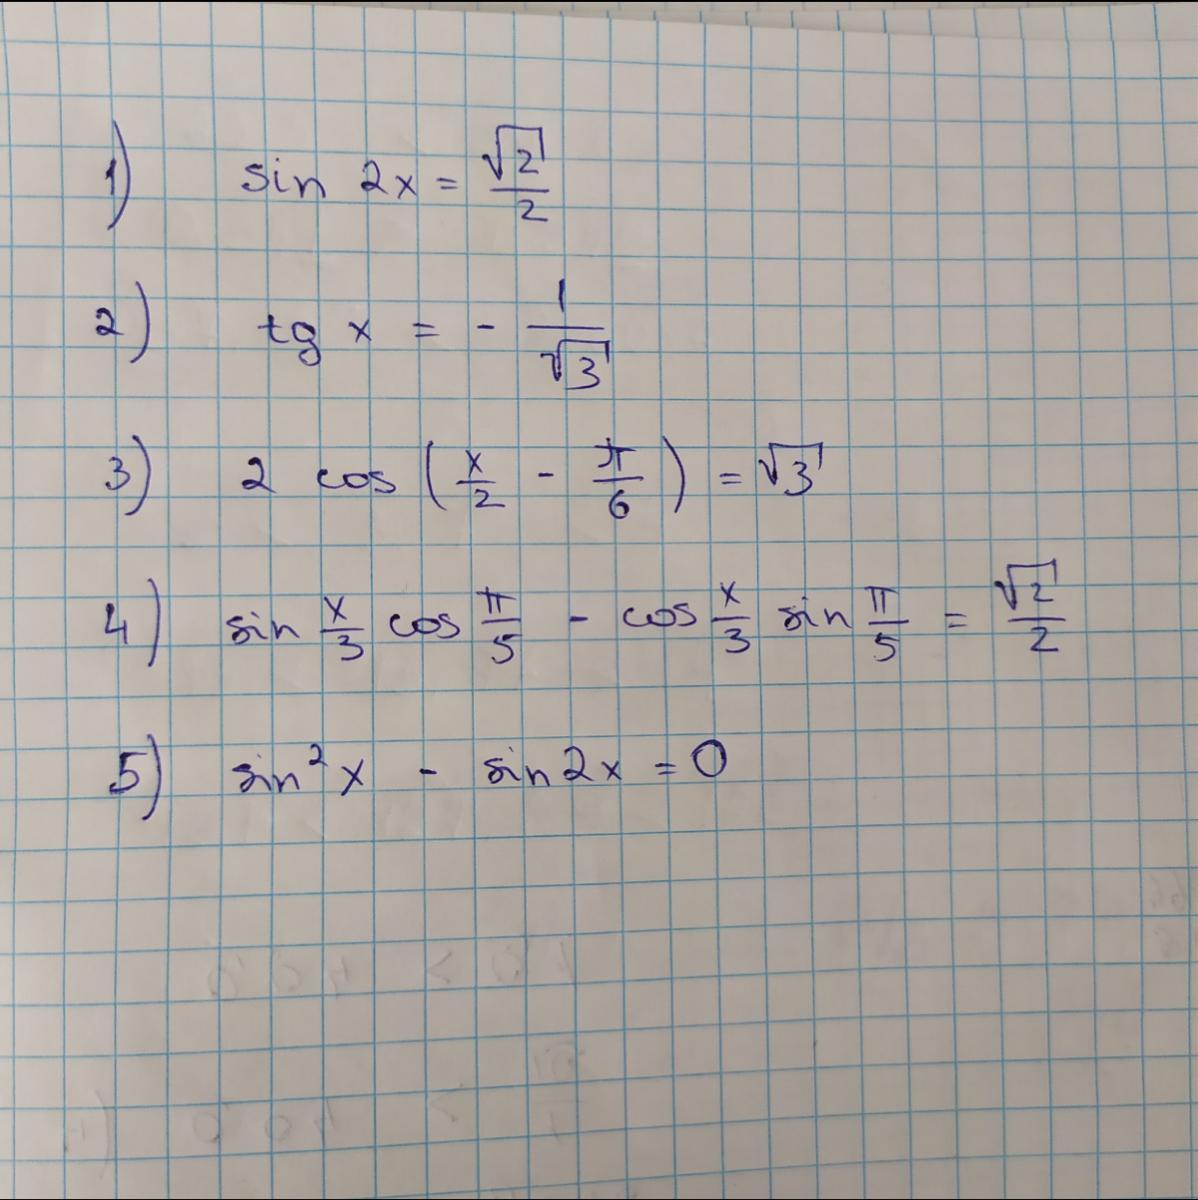 1) sin 2x = √2/2
2) tg x = - 1/√3
3) 2 cos (x/2 - π/6) = √3
4) sin x/3 cos π/5 - cos x/3 sin π/5 = √2/2
5) sin²x - sin2x = 0